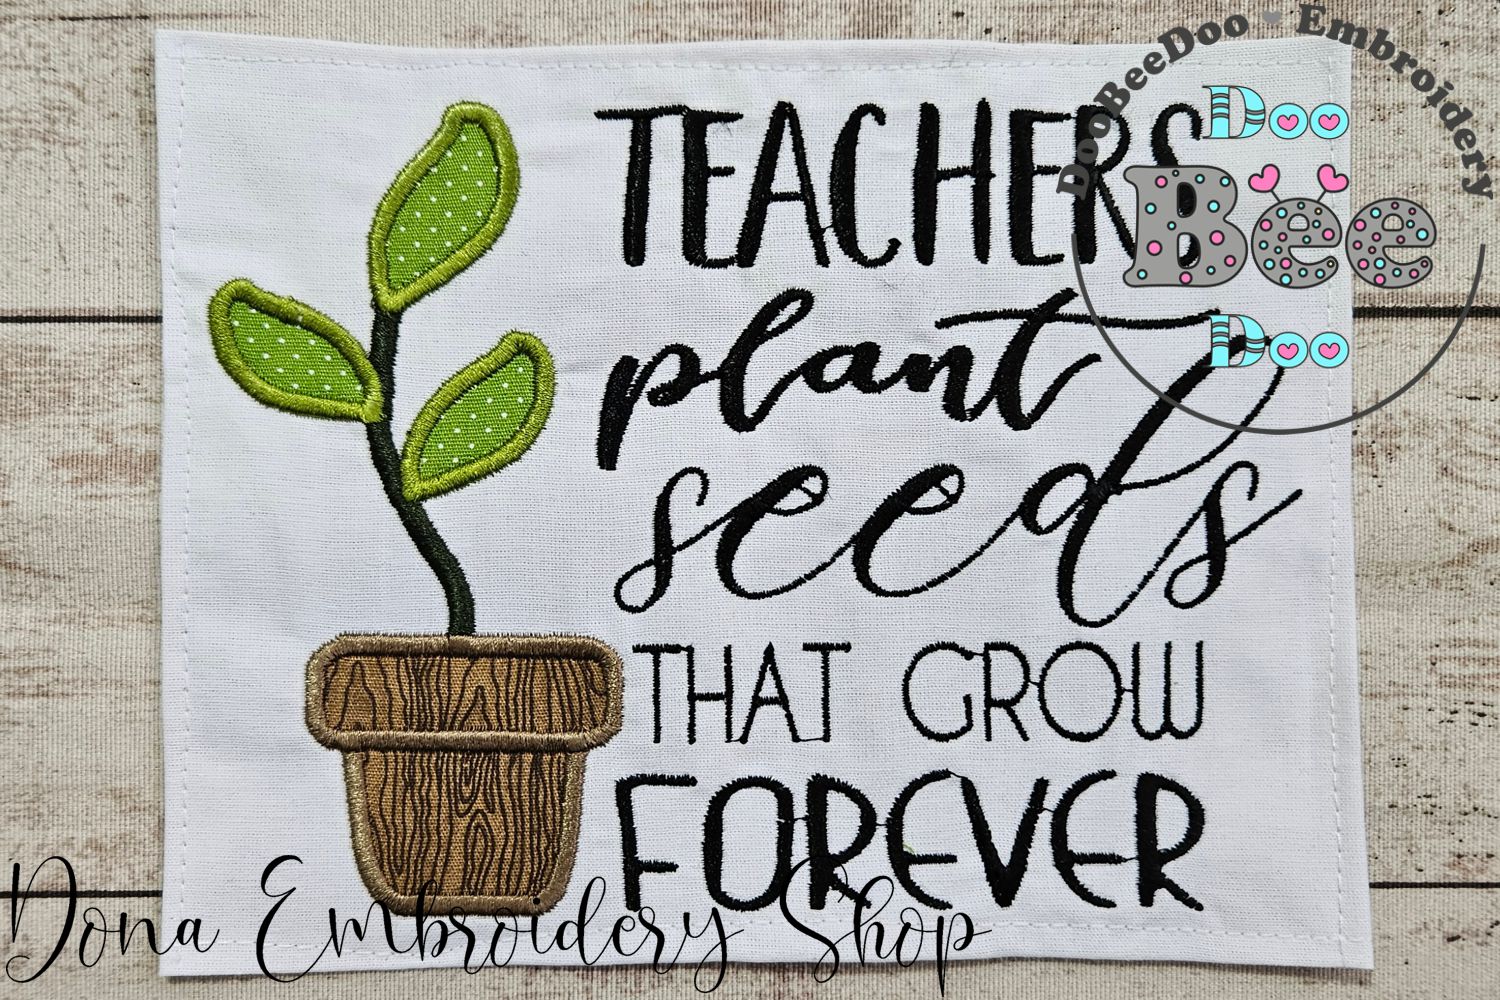 DooBeeDoo Embroidery
Doo
Bee
Doo
TEACHERS
plant
seeds
THAT GROW
FOREVER
Dona Embroidery Shop